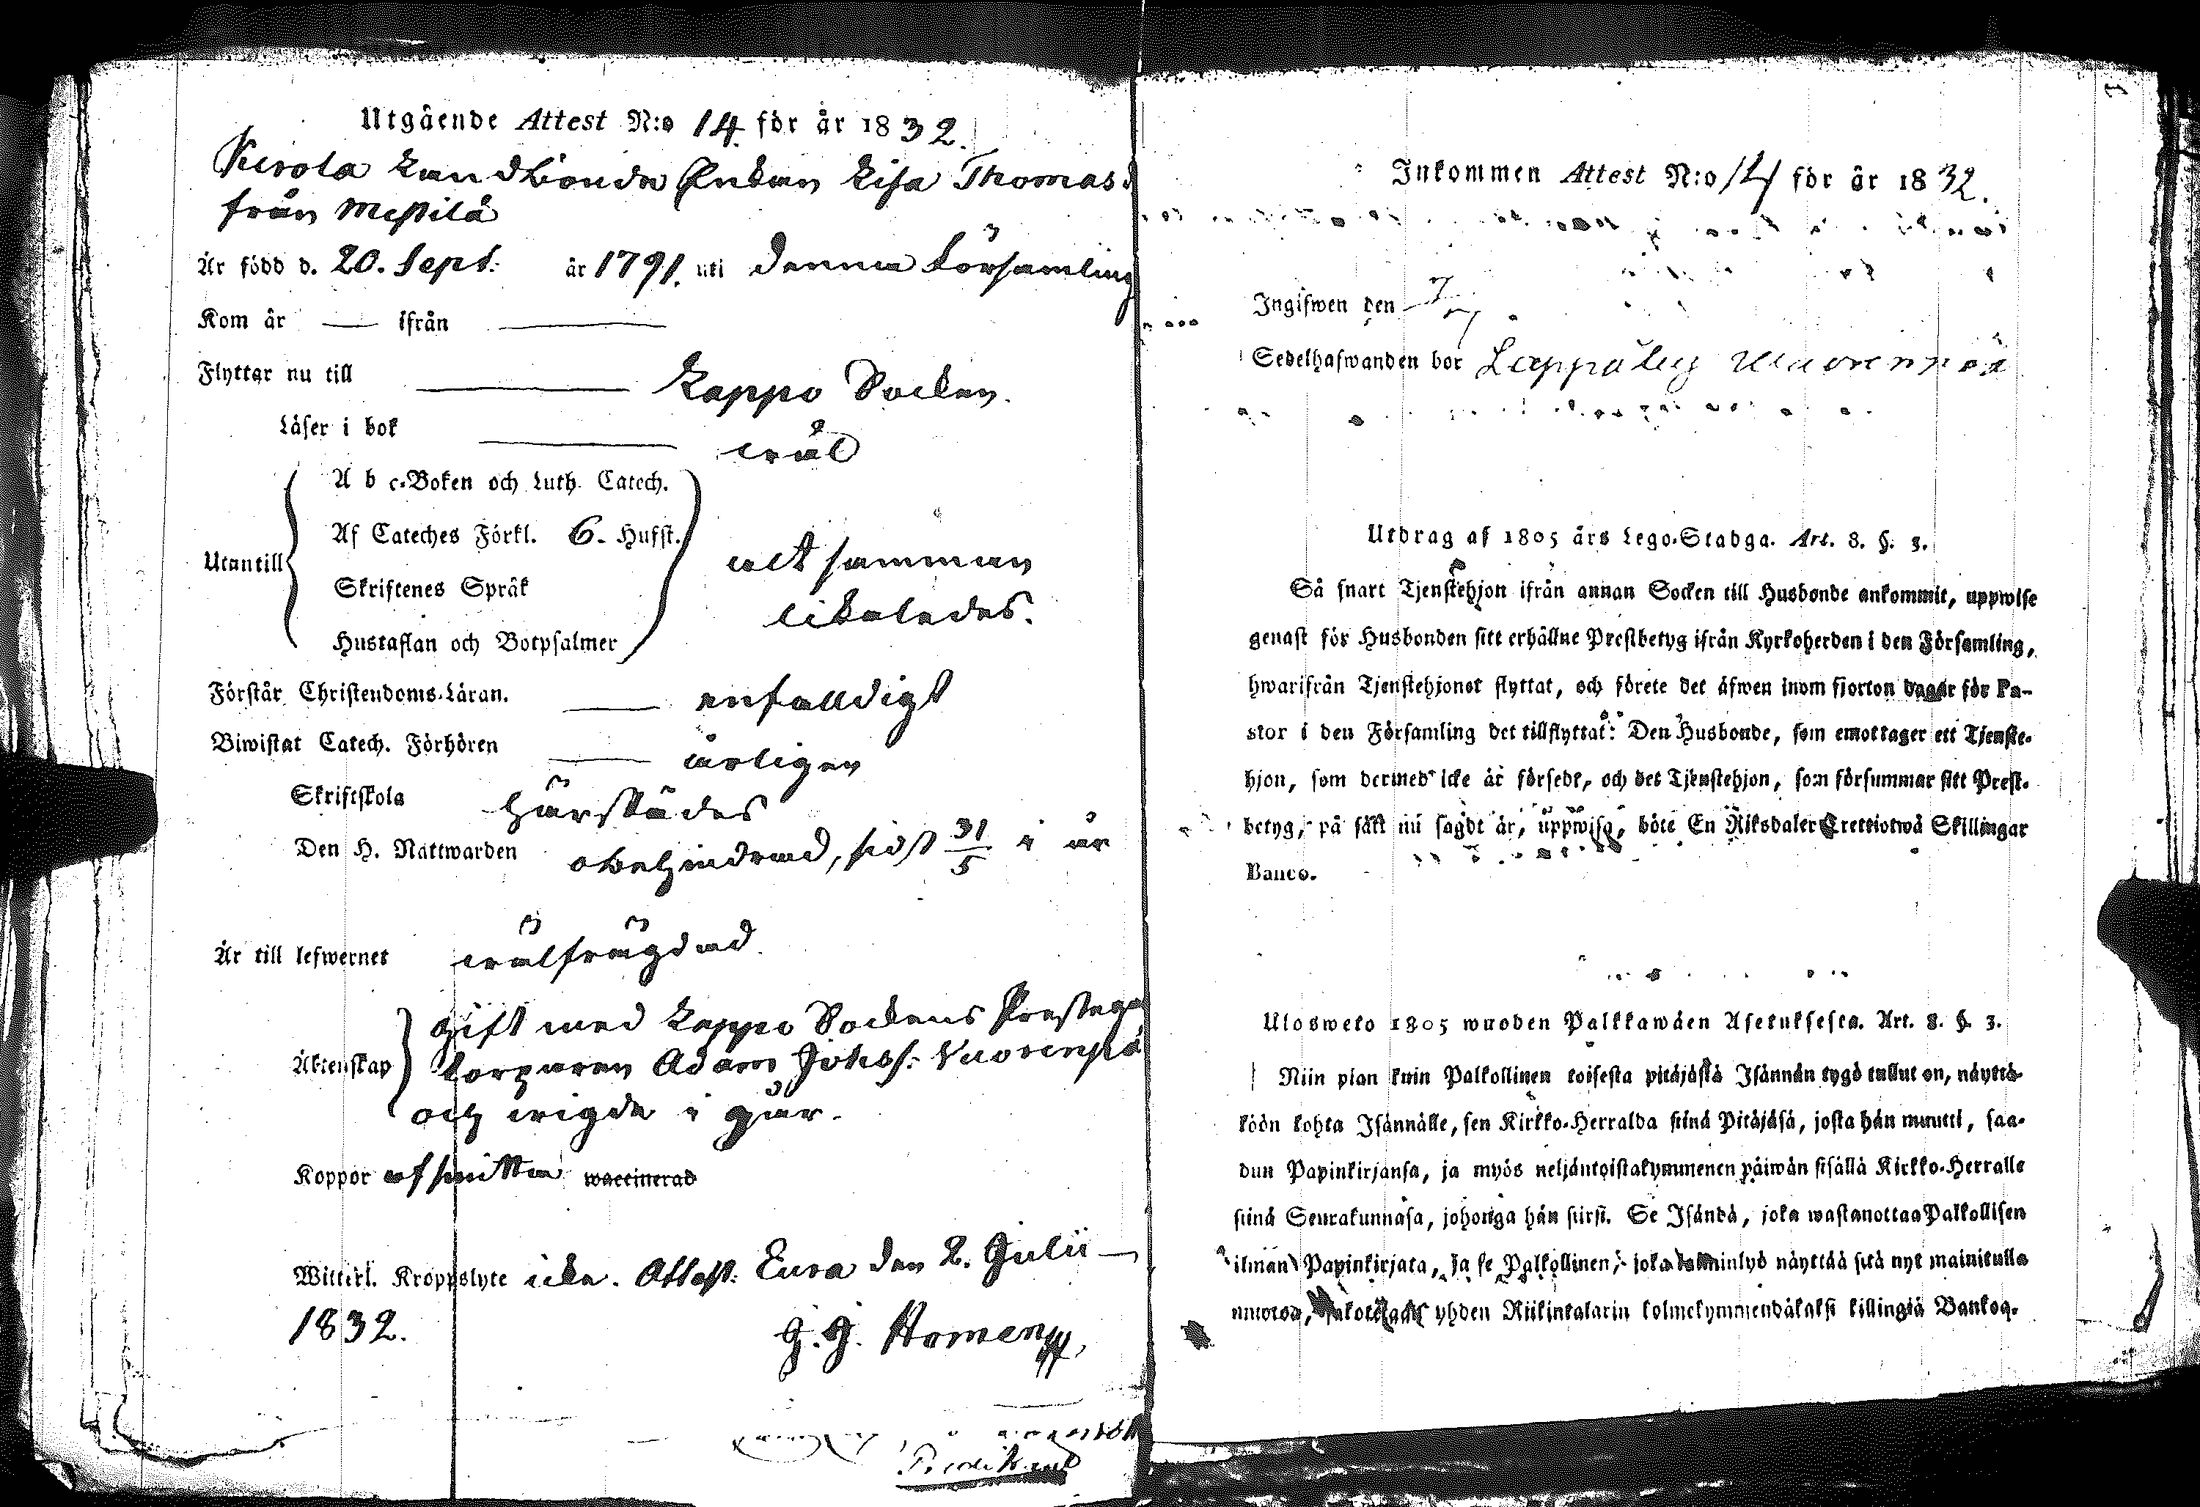 Utgående Attest N:o 14. för år 1832.
landbonde Enkan Lisa Thomasd
från Mestilä
Är född d. 20. Sept. år 1791. uti denna Församling
Kom år — ifrån —
Flyttar nu till — Lappo Socken.
Läser i bok — wäl
A b c-Boken och Luth. Catech.
Af Cateches Förkl. 6. Hufst.
Utantill
altsamman
Skriftenes Språk
likaledes.
Hustaflan och Botpsalmer
Förstår Christendoms-Läran. — enfalldigt
Biwistat Catech. Förhören — årligen
Skriftskola härstädes
Den H. Nattwarden obehindrad, sidst 31/5 i år
Är till lefwernet wälfrägdad.
Gift med Lappo Sockens
Äktenskap torparen Adam Johss: Vuorenpä
och wigde i går.
Koppor afsmitta waccinerad
Witterl. Kroppslyte icke. Attest. Eura den 2. Julii —
1832.
G. G. Homen
Inkommen Attest N:o 14 för år 1832.
Ingifwen den 7/7
Sedelhafwanden bor Lappåby Wuorenpää
Utdrag af 1805 års Lego-Stadga. Art. 8. §. 3.
Så snart Tjenstehjon ifrån annan Socken till Husbonde ankommit, uppwise
genast för Husbonden sitt erhållne Prestbetyg ifrån Kyrkoherden i den Församling,
hwarifrån Tjenstehjonet flyttat, och förete det äfwen inom fjorton dagar för Pa-
stor i den Församling det tillflyttat: Den Husbonde, som emottager ett Tjenste-
hjon, som dermed icke är försedt, och det Tjenstehjon, som försummar sitt Prest-
betyg, på sätt nu sagdt är, uppwisa, böte En Riksdaler Trettiotwå Skillingar
Banco.
Ulosweto 1805 wuoden Palkkawäen Asetuksesta. Art. 8. §. 3.
Niin pian kuin Palkollinen toisesta pitäjästä Isännän tygö tullut on, näyttä-
köön kohta Isännälle, sen Kirkko-Herralda siinä Pitäjäsä, josta hän muutti, saa-
dun Papinkirjansa, ja myös neljäntoistakymmenen päiwän sisällä Kirkko-Herralle
siinä Seurakunnasa, johonga hän siirsi. Se Isändä, joka wastanottaa Palkollisen
ilman Papinkirjata, ja se Palkollinen, joka laiminlyö näyttää sitä nyt mainitulla
muotoa, yhden Riikintalarin kolmekymmendäkaksi killingiä Bankoa.